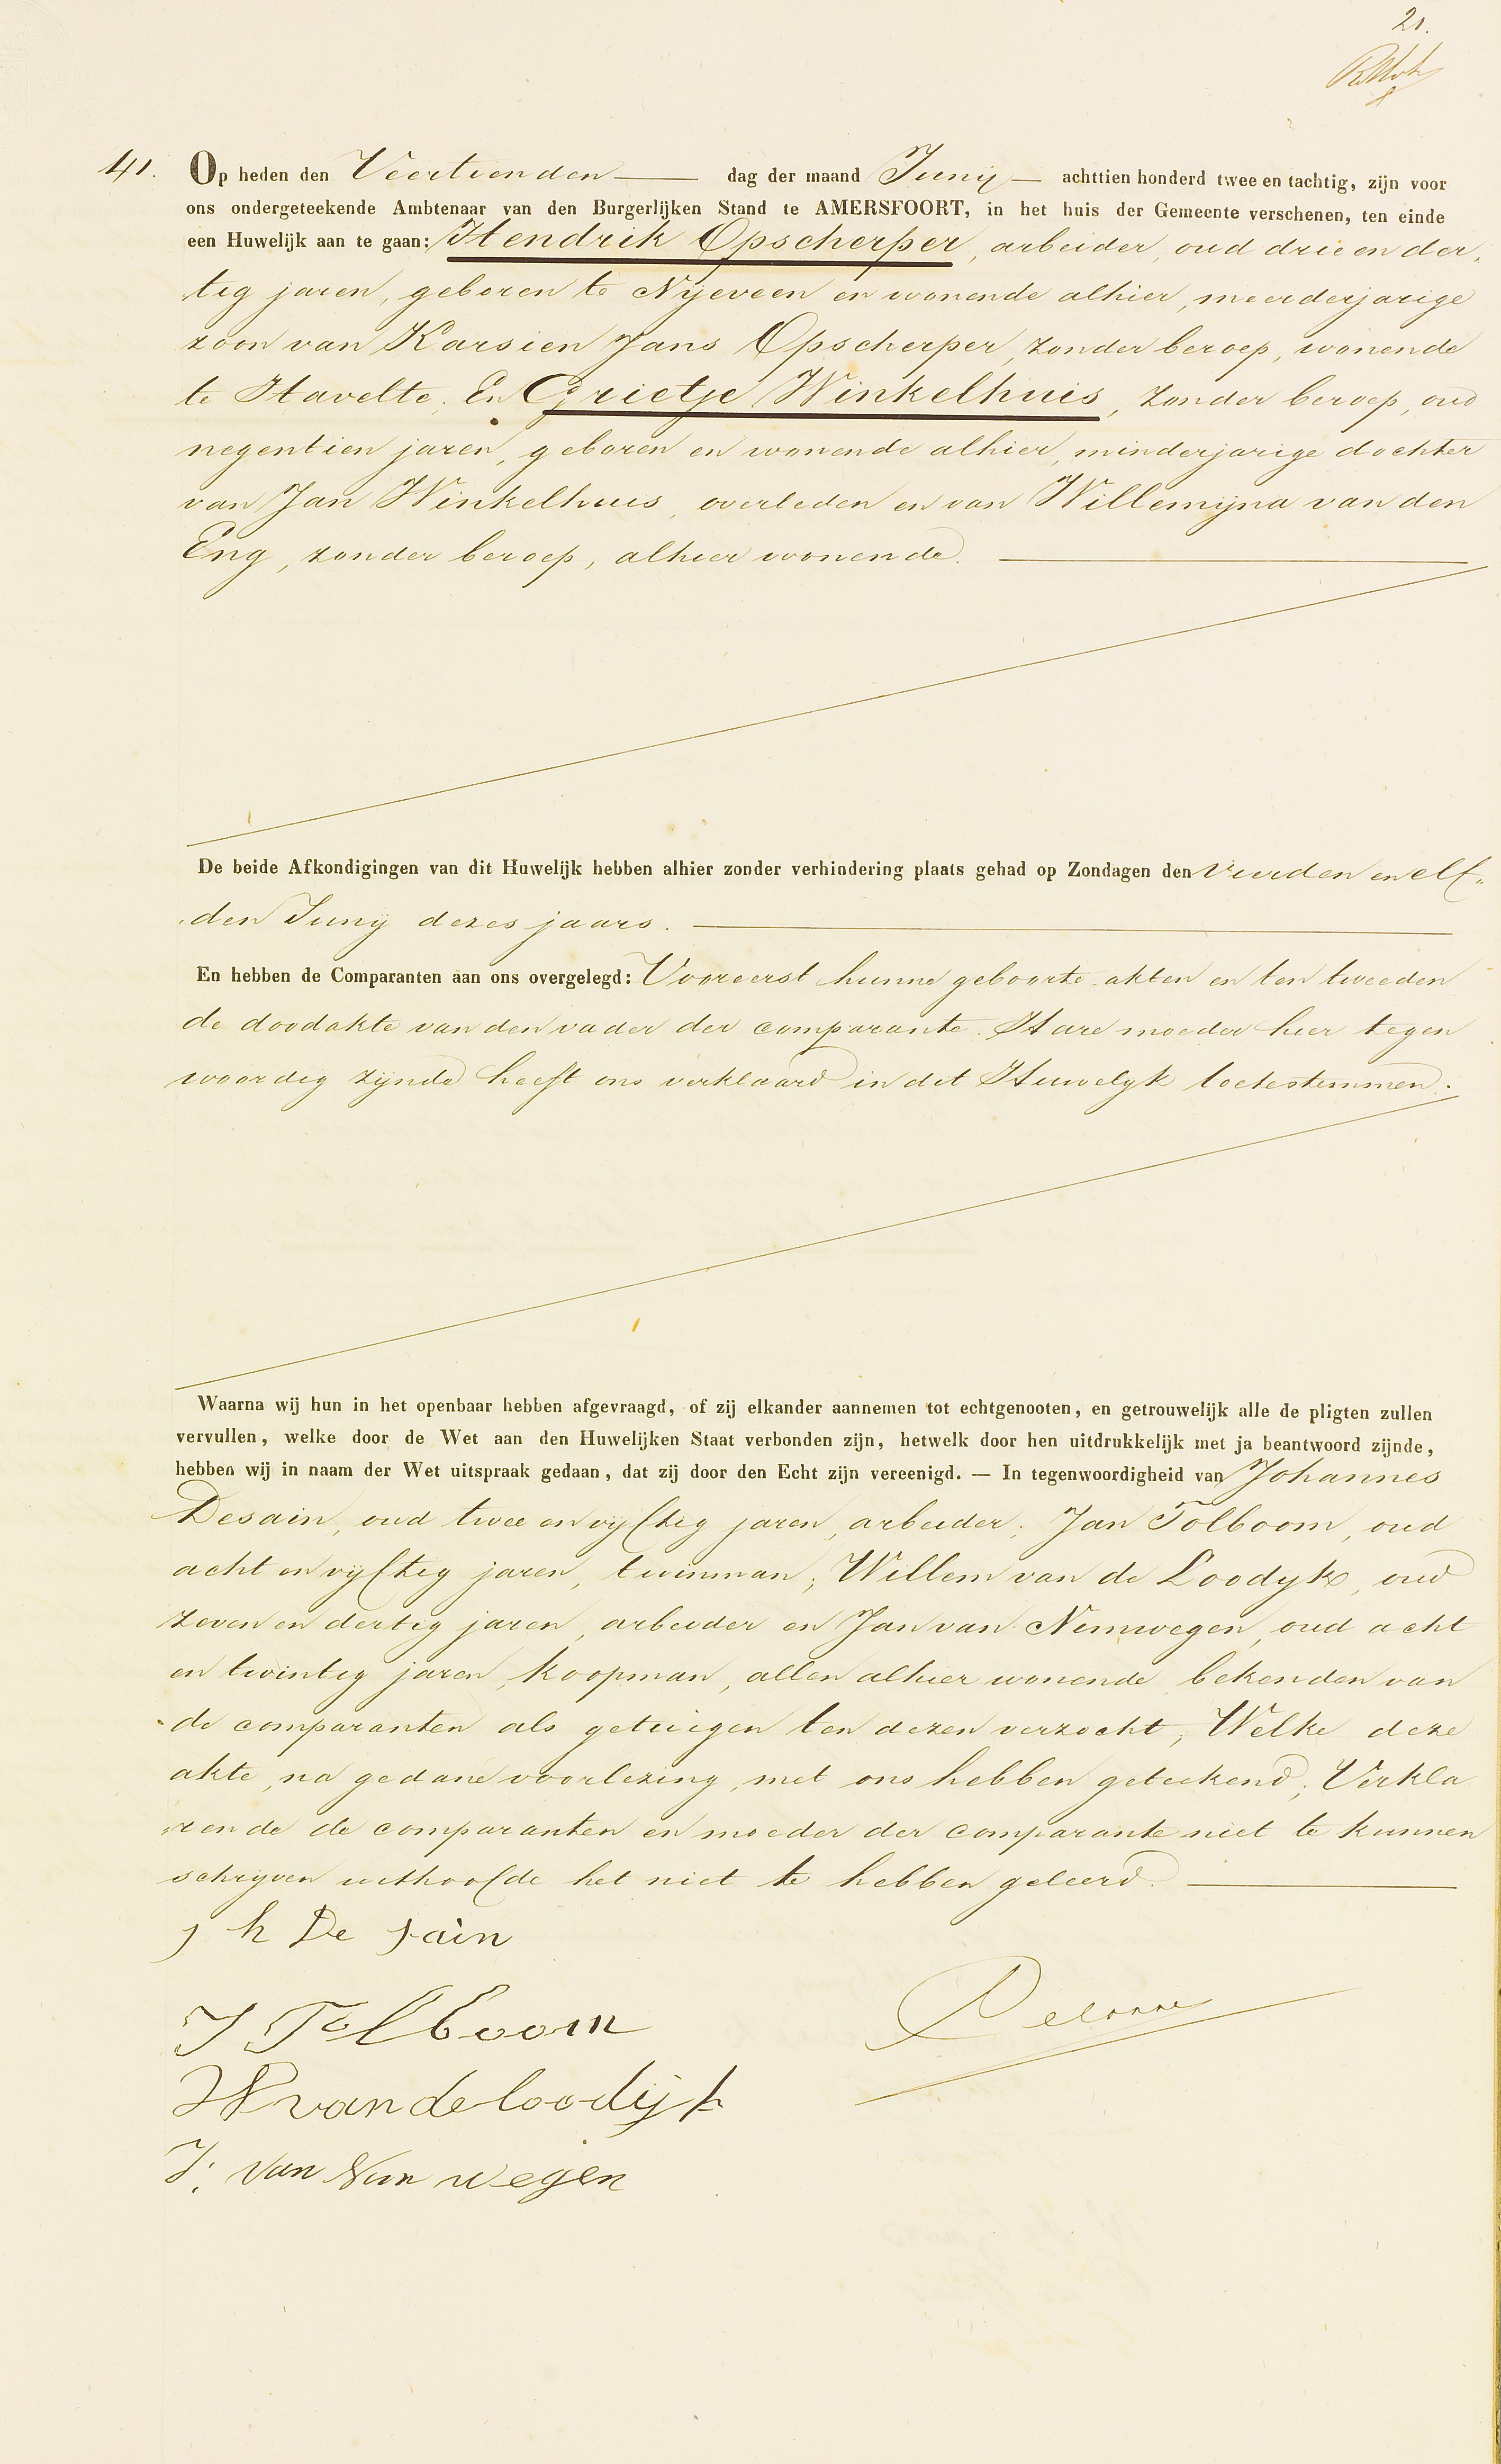 21.
41. Op heden den Veertienden dag der maand Junij achttien honderd twee en tachtig, zijn voor
ons ondergeteekende Ambtenaar van den Burgerlijken Stand te AMERSFOORT, in het huis der Gemeente verschenen, ten einde
een Huwelijk aan te gaan: Hendrik Opscherper, arbeider, oud drie en der„
„tig jaren, geboren te Nyeveen en wonende alhier, meerderjarige
zoon van Karsien Jans Opscherper, zonder beroep, wonende
te Havelte. En Grietje Winkelhuis, zonder beroep, oud
negentien jaren, geboren en wonende alhier, minderjarige dochter
van Jan Winkelhuis, overleden en van Willemijna van den
Eng, zonder beroep, alhier wonende.
De beide Afkondigingen van dit Huwelijk hebben alhier zonder verhindering plaats gehad op Zondagen den Vierden en elf„
„den Junij dezes jaars.
En hebben de Comparanten aan ons overgelegd: Vooreerst hunne geboorte akten en ten tweeden
de doodakte van den vader der comparante. Hare moeder hier tegen
woordig zijnde heeft ons verklaard in dit Huwelyk toetestemmen.
Waarna wij hun in het openbaar hebben afgevraagd, of zij elkander aannemen tot echtgenooten, en getrouwelijk alle de pligten zullen
vervullen, welke door de Wet aan den Huwelijken Staat verbonden zijn, hetwelk door hen uitdrukkelijk met ja beantwoord zijnde,
hebben wij in naam der Wet uitspraak gedaan, dat zij door den Echt zijn vereenigd. — In tegenwoordigheid van Johannes
Desain, oud twee en vijftig jaren, arbeider; Jan Tolboom, oud
acht en vijftig jaren, tuinman; Willem van de Loodyk, oud
zeven en dertig jaren, arbeider en Jan van Nimwegen, oud acht
en twintig jaren, koopman, allen alhier wonende, bekenden van
de comparanten als getuigen ten dezen verzocht; Welke deze
akte, na gedane voorlezing, met ons hebben geteekend; Verkla
„rende de comparanten en moeder der comparante niet te kunnen
schrijven uithoofde het niet te hebben geleerd.
J h De Sain
J Tolboom
W van de loodijk
J. van Nim wegen